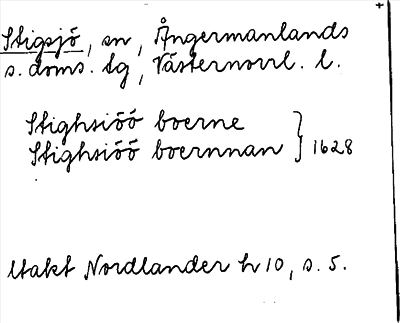 Stigsjö, sn, Ångermanlands
s. doms. tg, Västernorrl. l.
Stighsiöö boerne
Stighsiöö boernnan } 1628
Utakt Nordlander h 10, s. 5.